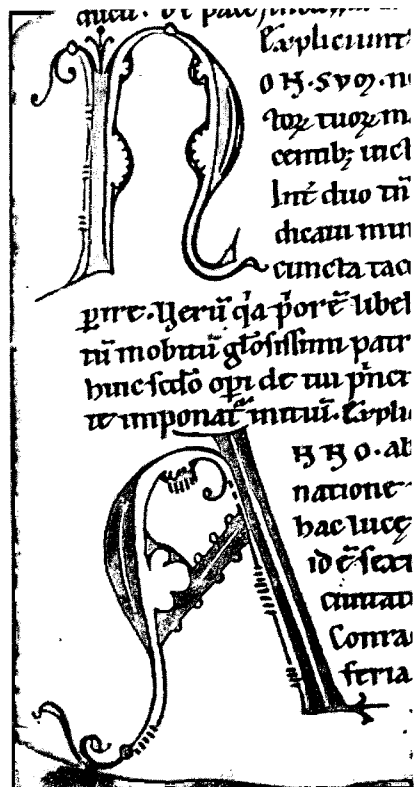 Expliciunt
NON. SVOꝜ. n
toꝝ tuoꝝ m
centibꝫ vict
Int̄ duo tn̄
dicaui mun
cuncta tac
ꝑire. Verū q̍a p̍ore ē libel
tū in obitū gl̄osissimi patr
huic scd̄o oꝑi de tui p̍nci
te imponat̄ initiū. Expli
ANNO. ab
natione
hac luce
id ē sext
ciuitati
Conra
feria